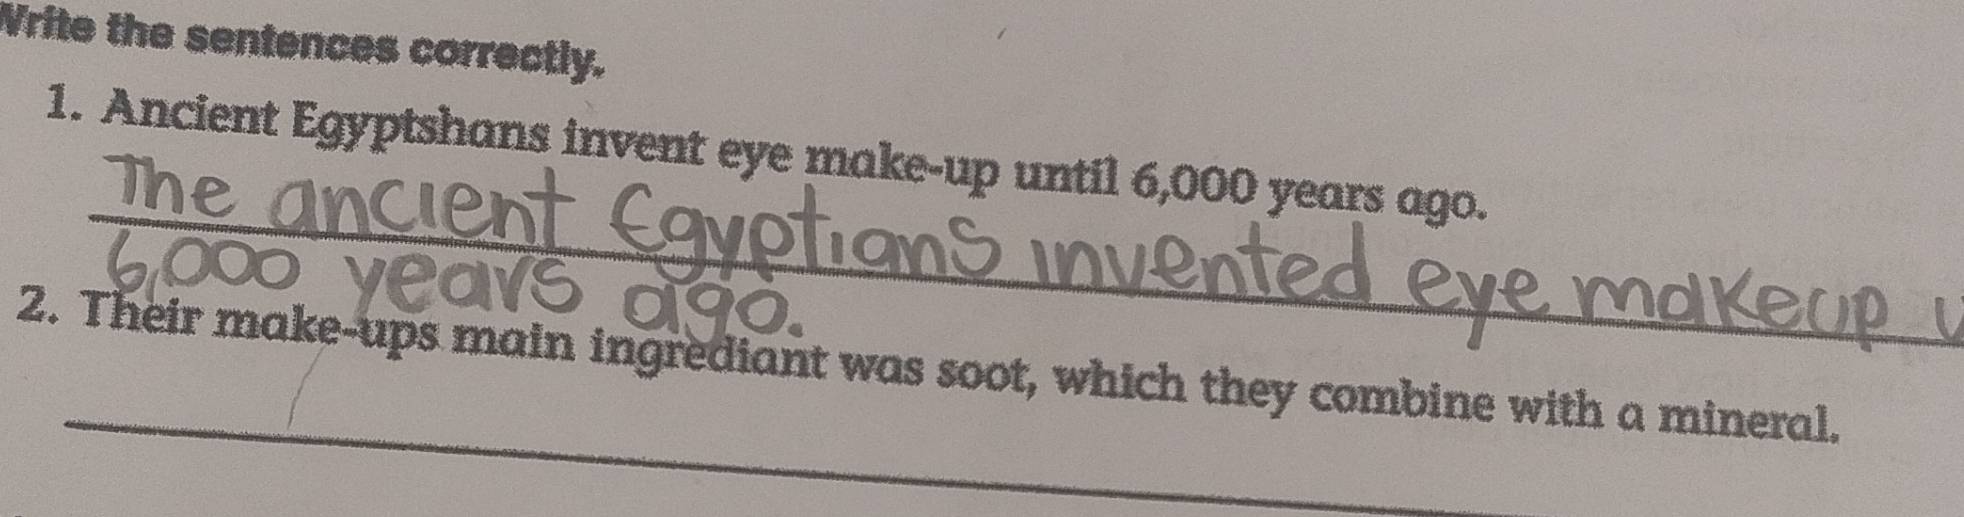 Write the sentences correctly.
1. Ancient Egyptshans invent eye make-up until 6,000 years ago.
The ancient Egyptians invented eye makeup
6,000 years ago.
2. Their make-ups main ingrediant was soot, which they combine with a mineral.